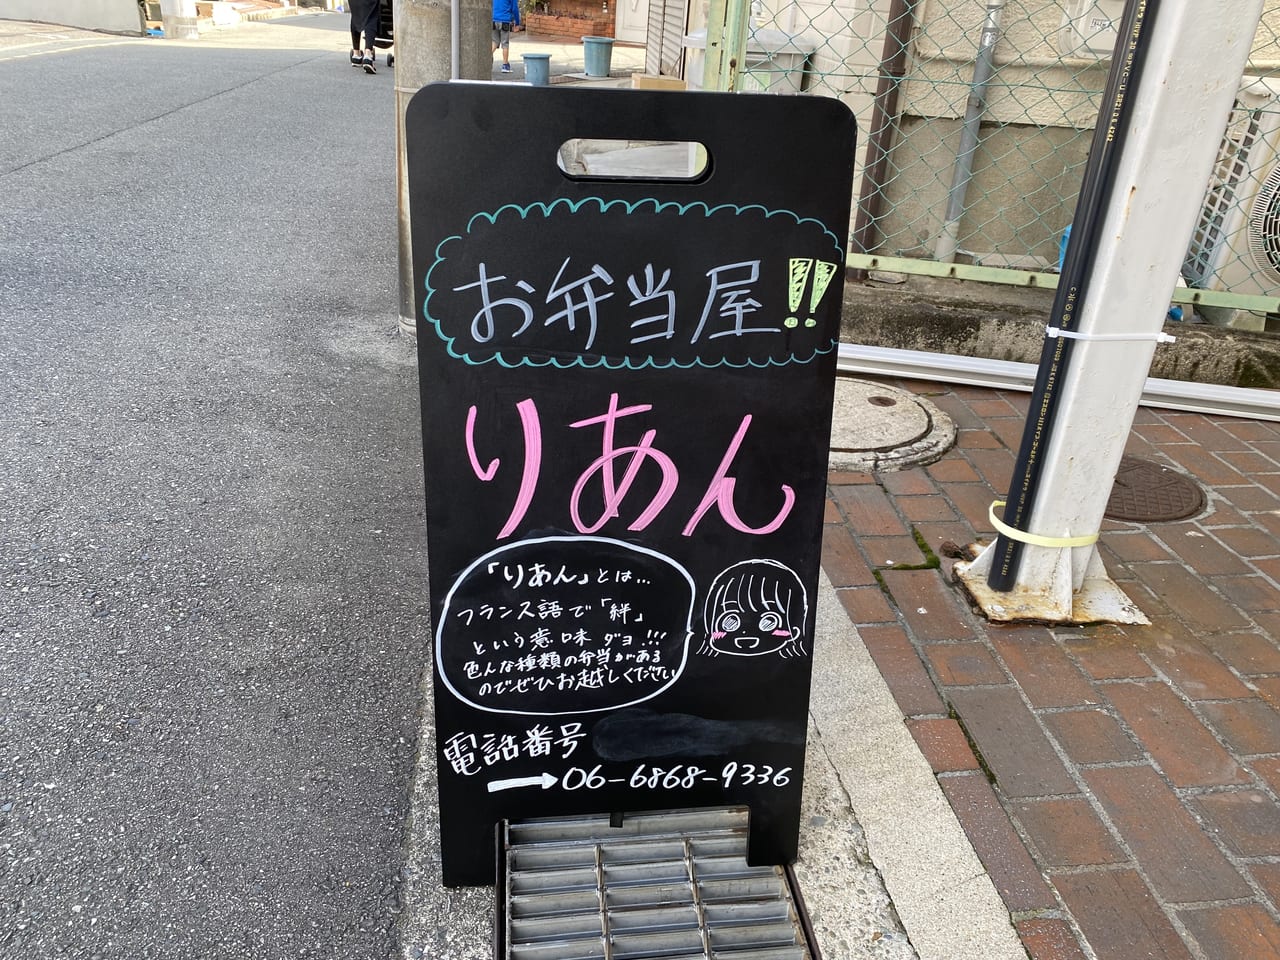 お弁当屋!!
りあん
「りあん」とは...
フランス語で「絆」
という意味ダヨ!!!
色んな種類の弁当がある
のでぜひお越しください
電話番号
→06-6868-9336